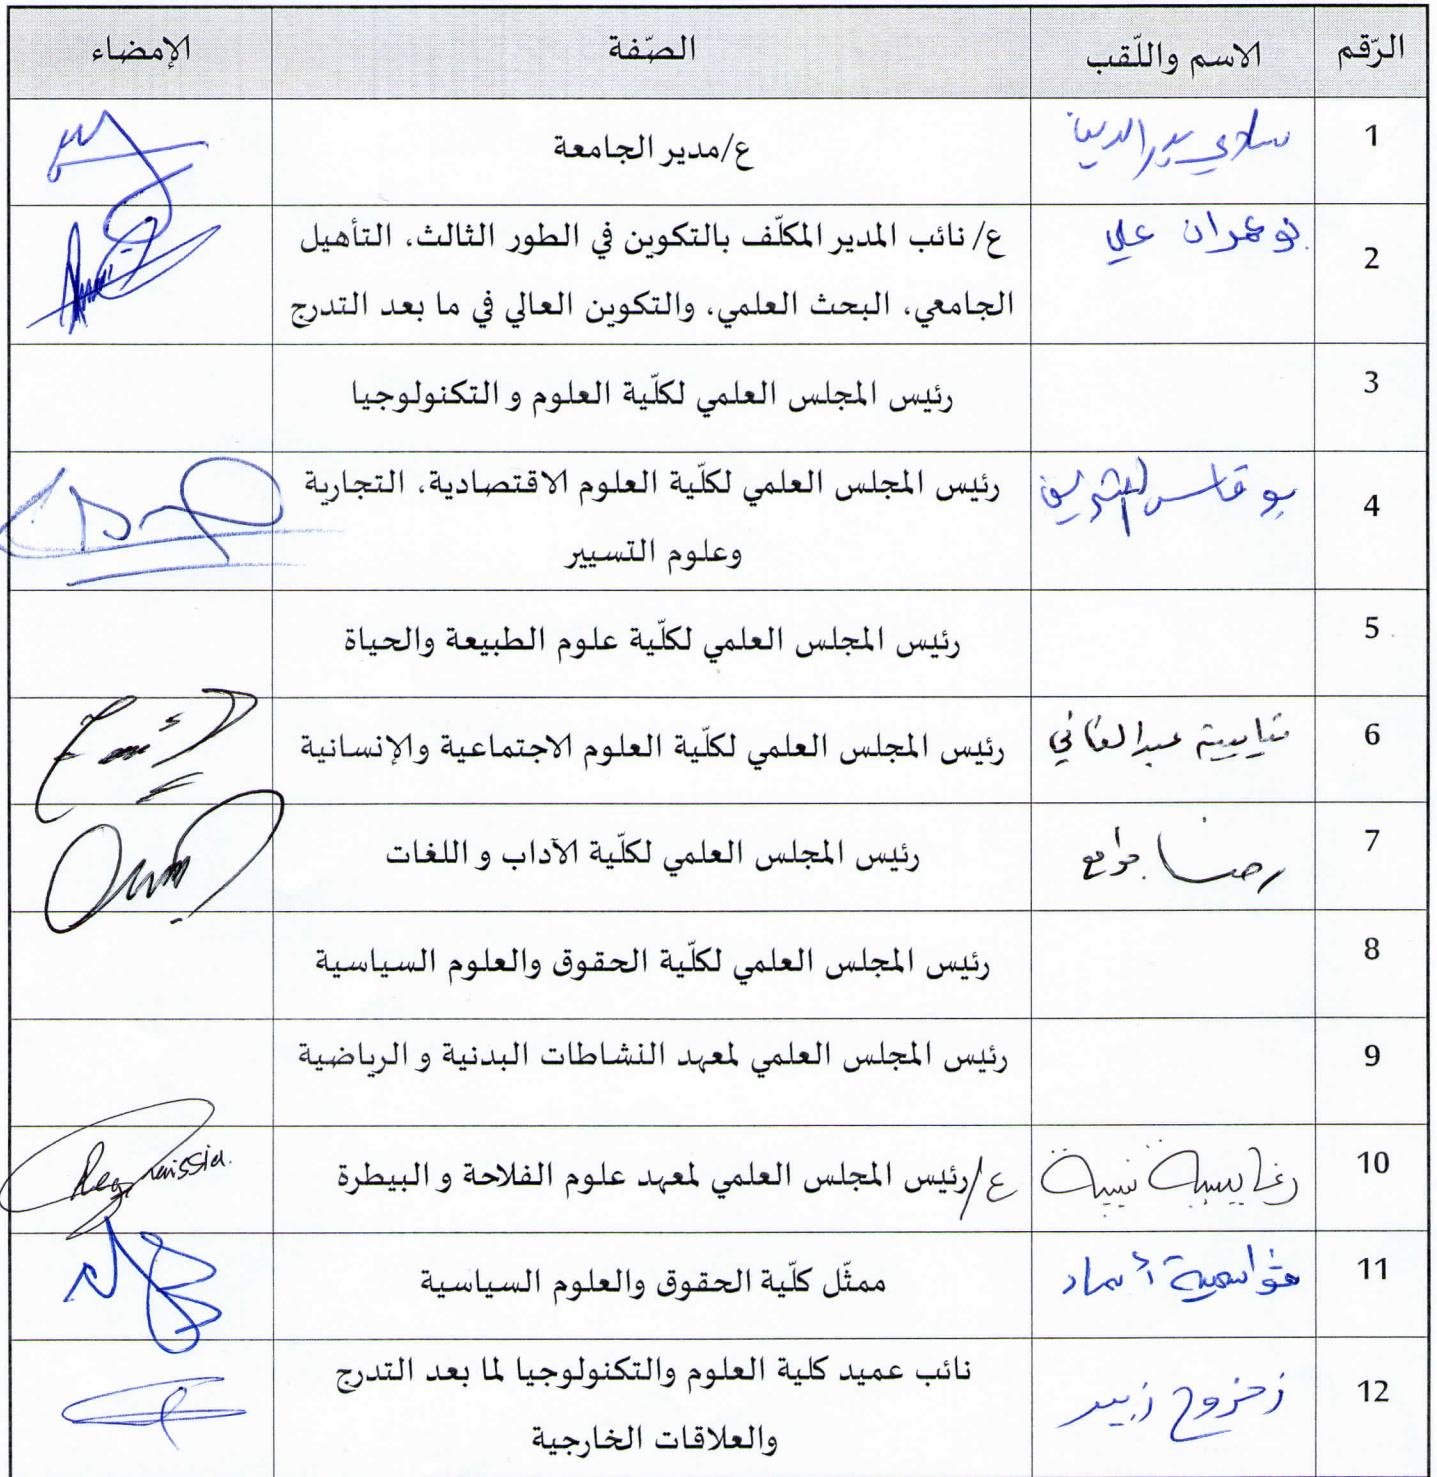 الرّقم الاسم واللّقب الصّفة الإمضاء
1 ع/مدير الجامعة
2 بوعمران علي ع/ نائب المدير المكلّف بالتكوين في الطور الثالث، التأهيل
الجامعي، البحث العلمي، والتكوين العالي في ما بعد التدرج
3 رئيس المجلس العلمي لكلّية العلوم و التكنولوجيا
4 رئيس المجلس العلمي لكلّية العلوم الاقتصادية، التجارية
وعلوم التسيير
5 رئيس المجلس العلمي لكلّية علوم الطبيعة والحياة
6 رئيس المجلس العلمي لكلّية العلوم الاجتماعية والإنسانية
7 رضا جوامع رئيس المجلس العلمي لكلّية الآداب و اللغات
8 رئيس المجلس العلمي لكلّية الحقوق والعلوم السياسية
9 رئيس المجلس العلمي لمعهد النشاطات البدنية و الرياضية
10 ع/رئيس المجلس العلمي لمعهد علوم الفلاحة و البيطرة
11 ممثّل كلّية الحقوق والعلوم السياسية
12 نائب عميد كلية العلوم والتكنولوجيا لما بعد التدرج
والعلاقات الخارجية